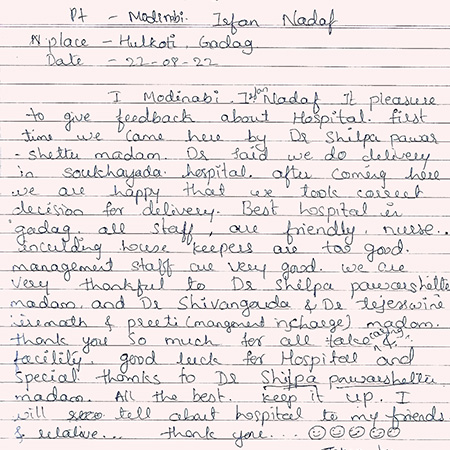 Pt - Modinabi. Isfan Nadaf
place - Hulkoti, Gadag
Date - 22-08-22
I Modinabi. Isfan Nadaf It pleasure
to give feedback about Hospital. first
time we came here by Dr Shilpa pawar
- shettu madam. Dr said we do delivery
in soukhayada hospital. after coming here
we are happy that we took correct
decision for delivery. Best hospital in
gadag. all staff, are friendly, nurse..
including house keepers are too good.
management staff are very good. we are
very thankful to Dr Shilpa pawarshettu
madam, and Dr Shivangauda & Dr tejesswini
& preeti (mangement incharge) madam.
thank you so much for all take caring &
facility, good luck for Hospital and
special thanks to Dr Shilpa pawarshettu
madam. All the best. keep it up. I
will tell about hospital to my friends
& relative... thank you....